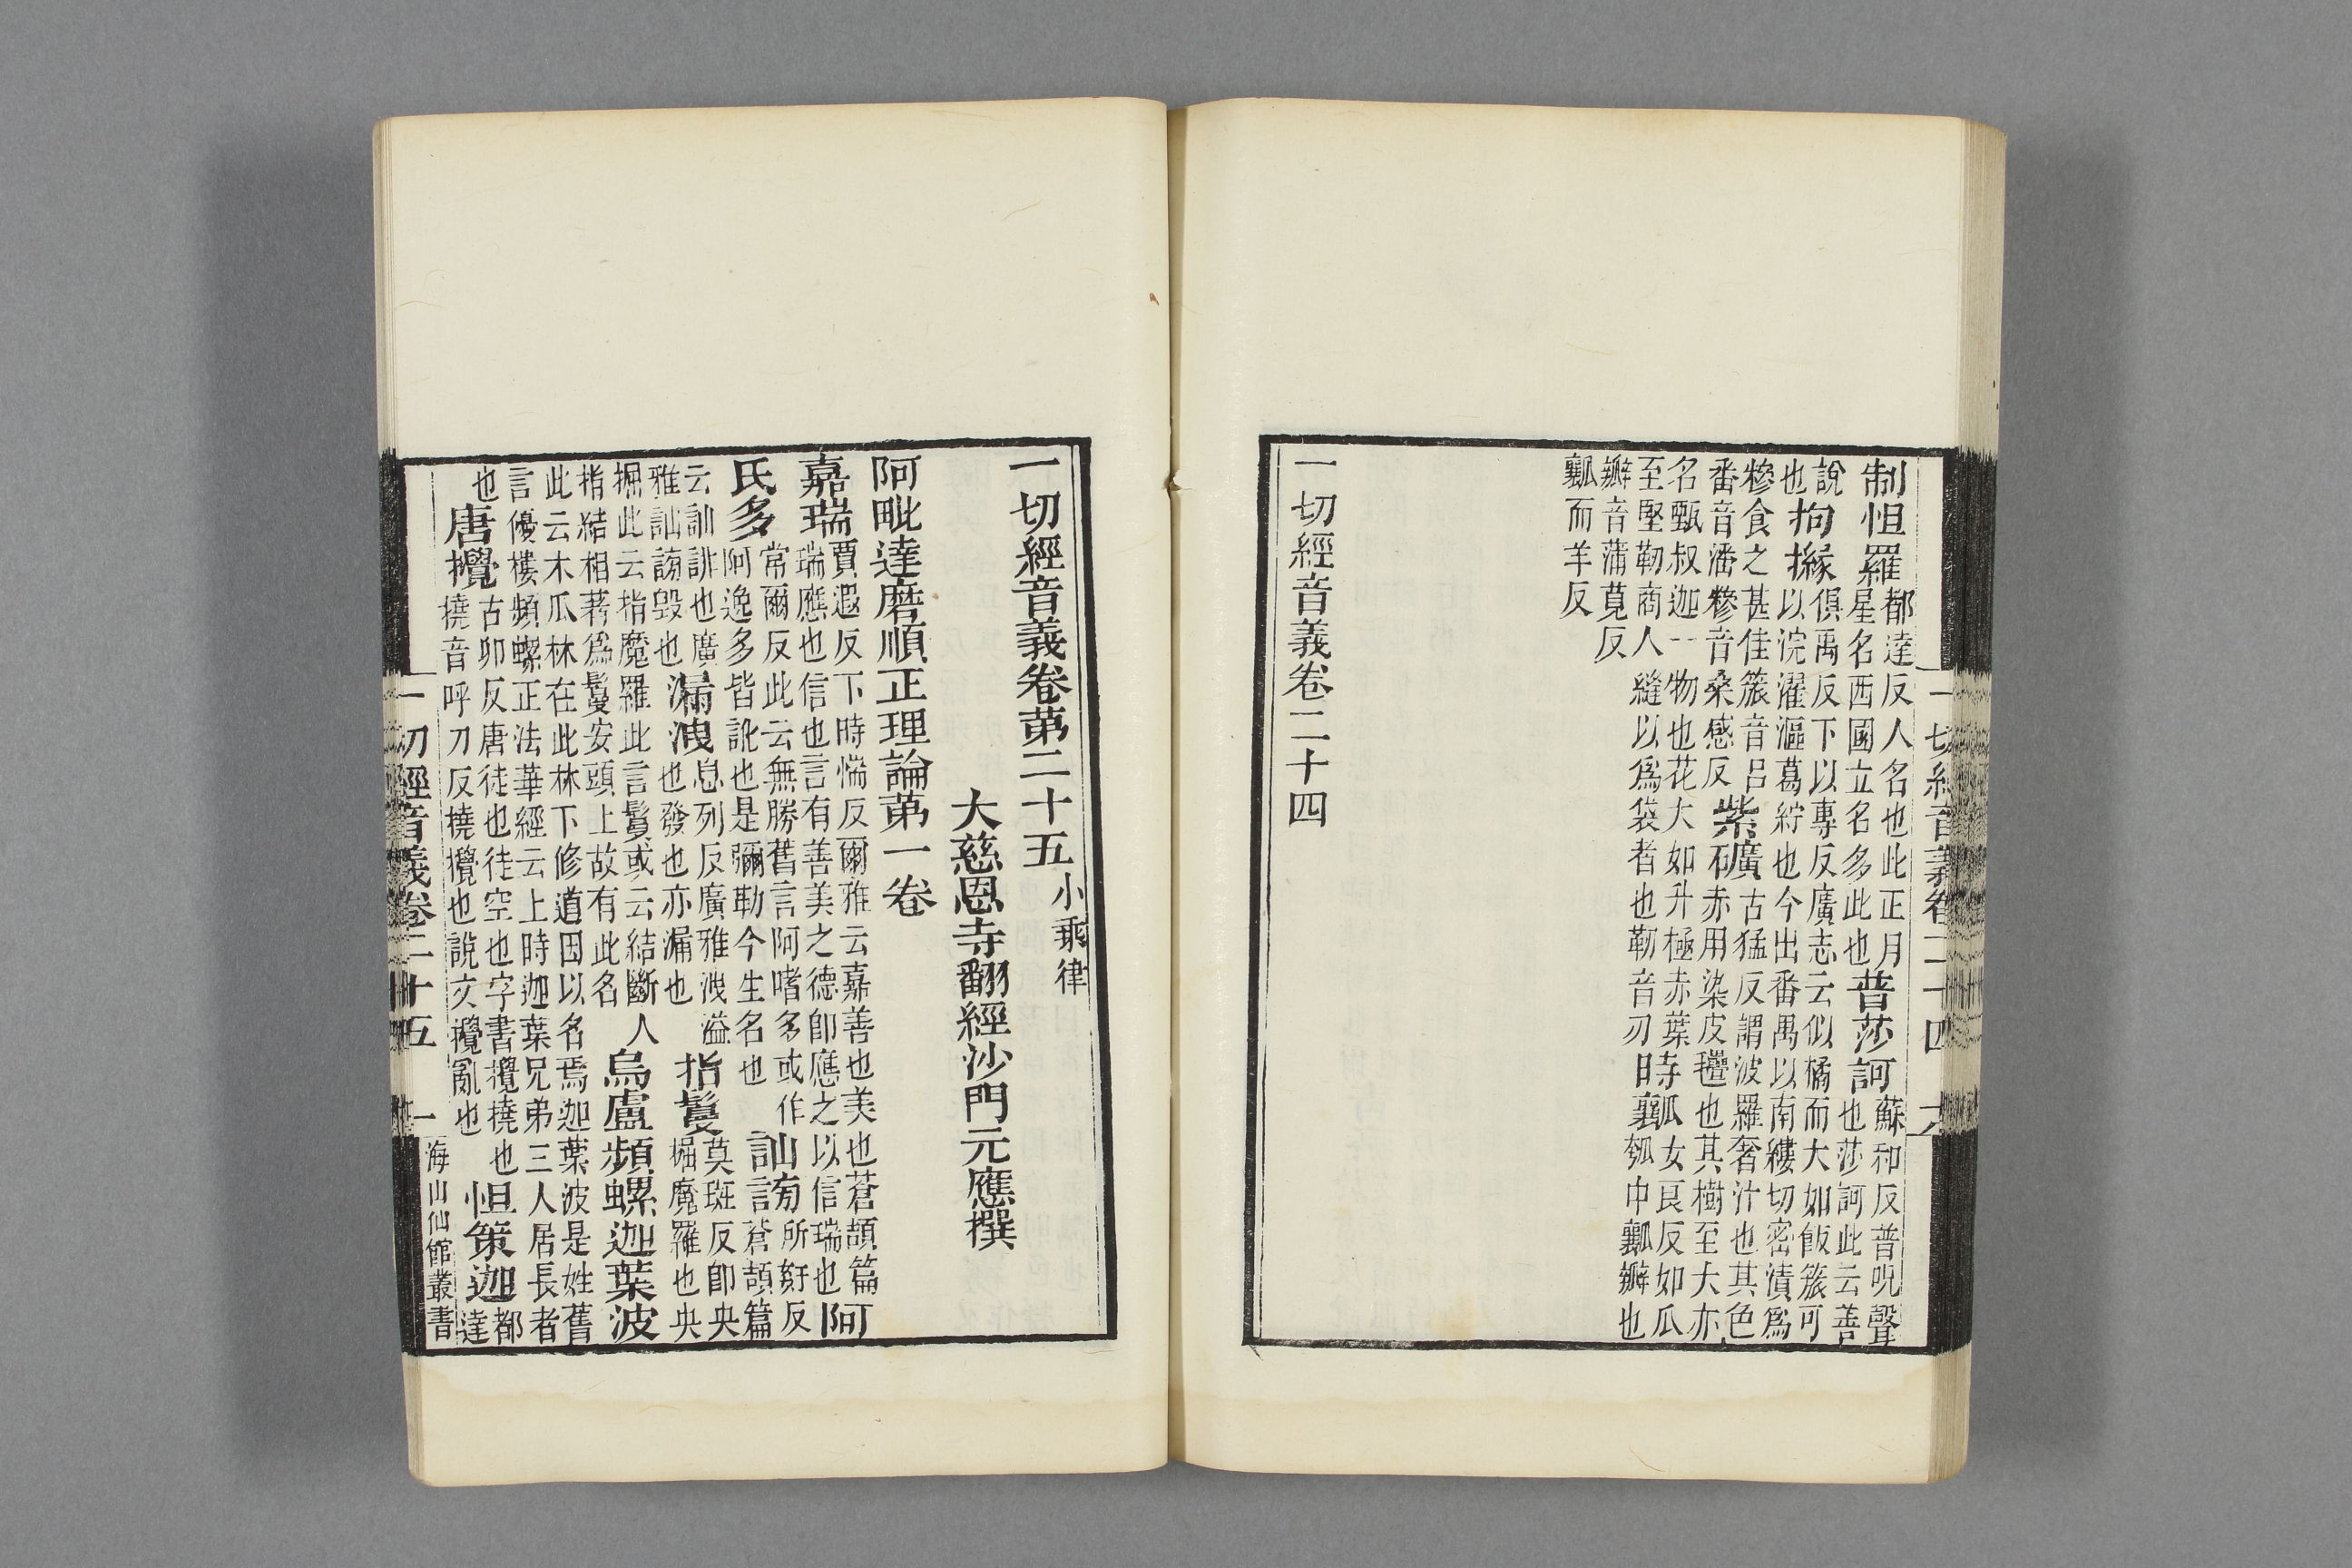 一切經音義卷二十四　六
制怛羅都達反人名也此正月星名西國立名多此也普莎訶蘇和反普呪聲也莎訶此云善
說也拘櫞俱禹反下以專反廣志云似橘而大如飯筥可以浣濯漚葛紵也今出番禺以南縷切密漬爲
糝食之甚佳筥音呂番音潘糝音桑感反紫礦古猛反謂波羅奢汁也其色赤用染皮氎也其樹至大亦
名甄叔迦一物也花大如升極赤葉至堅靭商人縫以爲袋者也靭音刃時瓤女良反如瓜瓠中瓤瓣也
瓣音蒲莧反瓤而羊反
一切經音義卷二十四
一切經音義卷第二十五小乘律
大慈恩寺翻經沙門元應撰
阿毗達磨順正理論第一卷
嘉瑞賈遐反下時惴反爾雅云嘉善也美也蒼頡篇瑞應也信也言有善美之德卽應之以信瑞也阿
氏多常爾反此云無勝舊言阿嗜多或作阿逸多皆訛也是彌勒今生名也訕謗所姧反蒼頡篇
云訕誹也廣雅訕謗毀也漏洩息列反廣雅洩溢也發也亦漏也指鬘莫班反卽央掘魔羅也央
掘此云指魔羅此言鬘或云結斷人指結相著爲鬘安頭上故有此名烏盧頻螺迦葉波
此云木瓜林在此林下修道因以名焉迦葉波是姓舊言優樓頻螺正法華經云上時迦葉兄弟三人居長者
也唐攪古卯反唐徒也徒空也字書攪撓也撓音呼刀反撓攪也說文攪亂也怛策迦都達
一切經音義卷二十五　一　海山仙館叢書